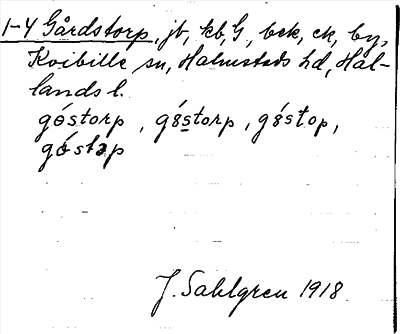 1-4 Gårdstorp, jb, kb, G, bek, ek, by,
Kvibille sn, Halmstads hd, Hal-
lands l.
góstorp, gó̤storp, góstop,
góstap
J. Sahlgren 1918